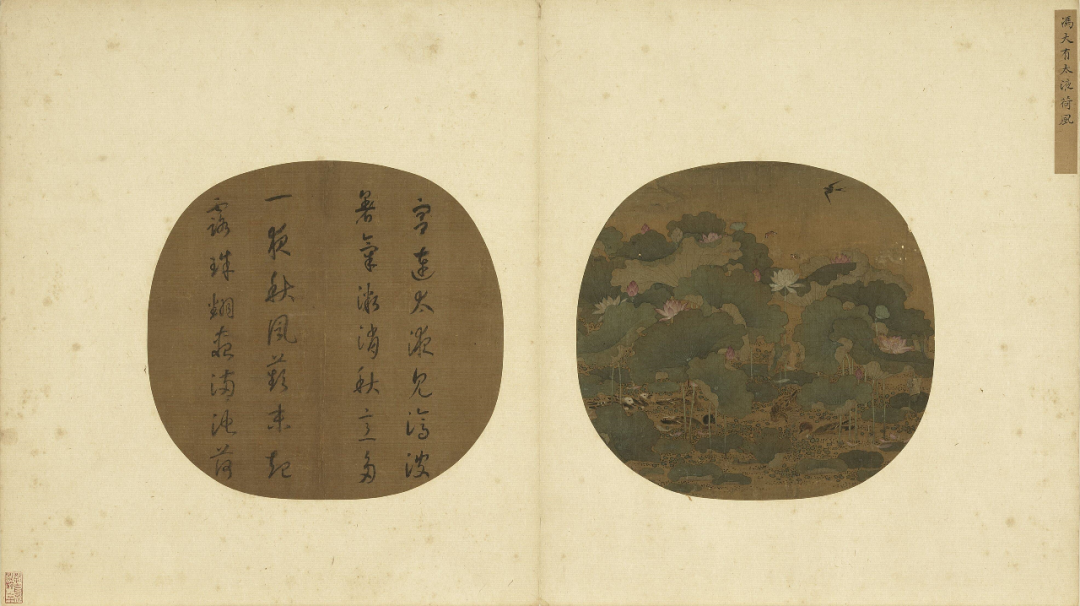 馮大有太液荷風
宮連太液見滄波
暑氣微消秋意多
一夜秋風蘋末起
露珠翻盡滿池荷